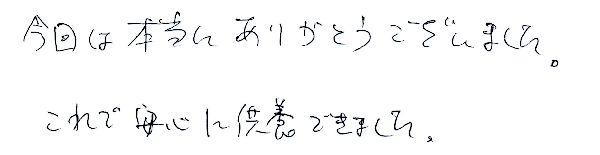 今回は本当にありがとうございました。
これで安心に供養できました。